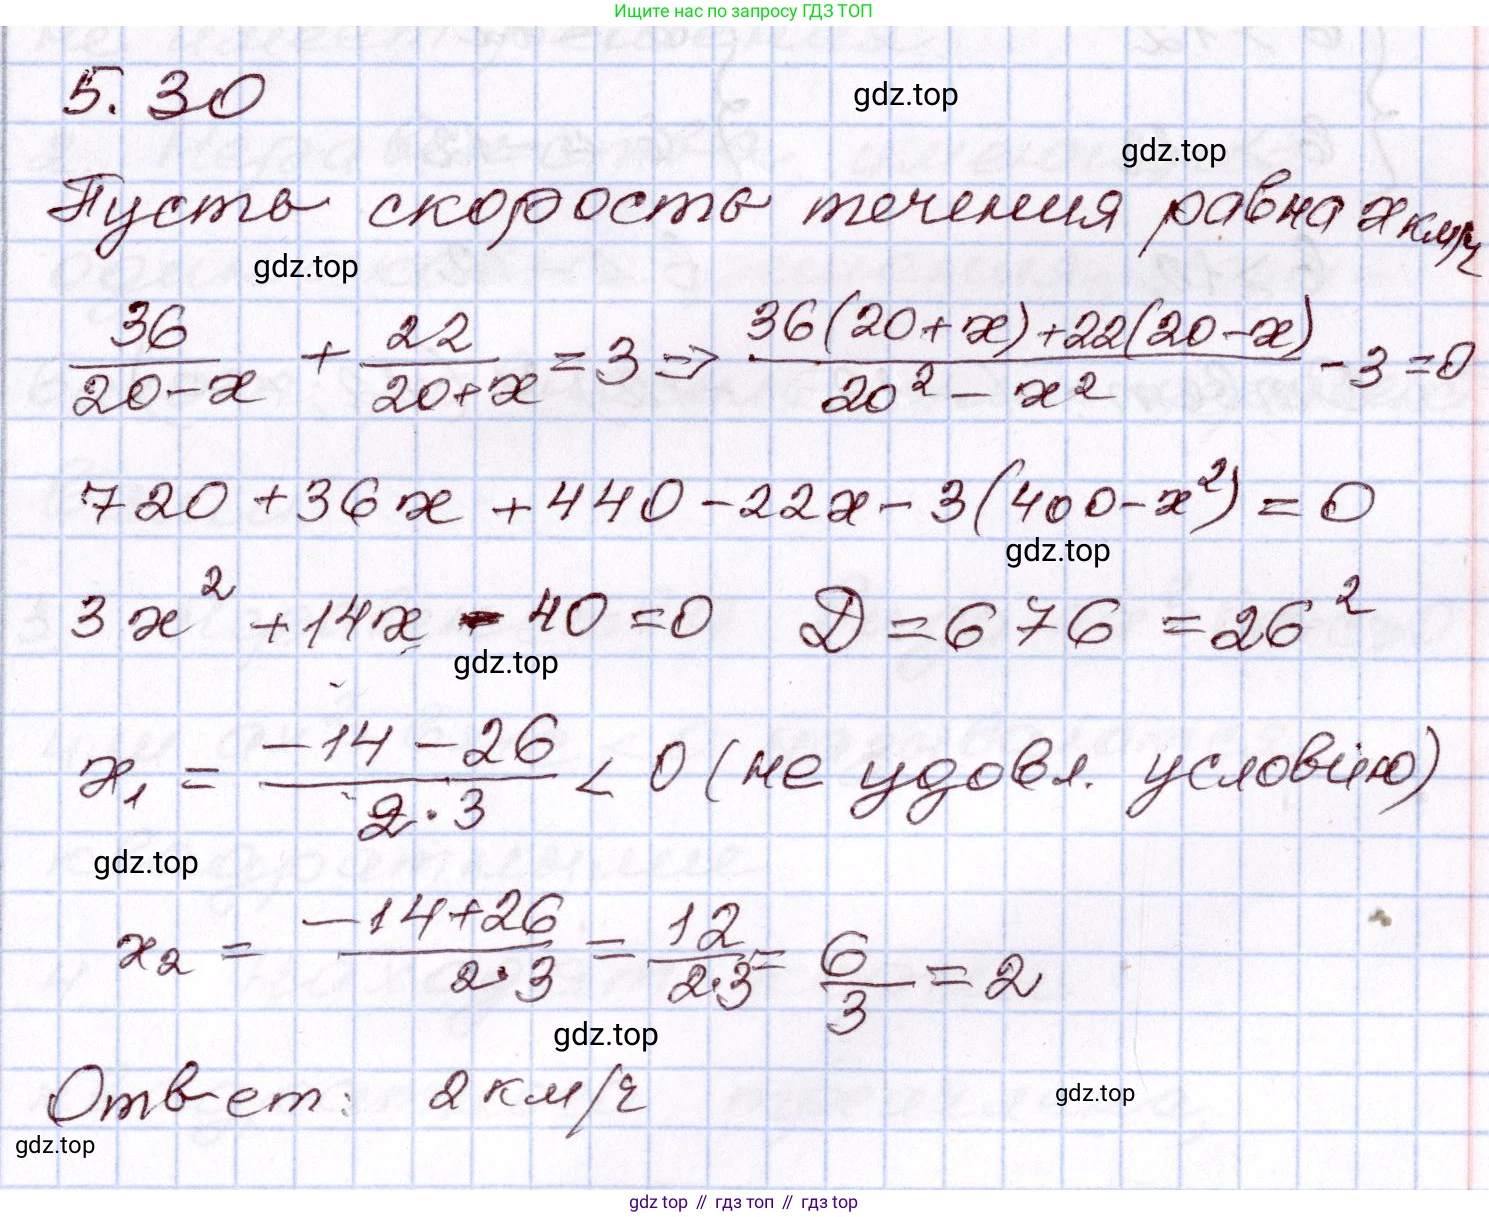 Ищите нас по запросу ГДЗ ТОП
5. 30
gdz.top
gdz.top
Пусть скорость течения равна x км/ч
gdz.top
36/(20-x) + 22/(20+x) = 3 => (36(20+x)+22(20-x))/(20² - x²) - 3 = 0
720 + 36x + 440 - 22x - 3(400 - x²) = 0
gdz.top
3x² + 14x - 40 = 0 D = 676 = 26²
gdz.top
x₁ = (-14 - 26)/(2·3) < 0 (не удовл. условию)
gdz.top
x₂ = (-14+26)/(2·3) = 12/(2·3) = 6/3 = 2
gdz.top
Ответ: 2 км/ч
gdz.top
gdz.top
gdz top // гдз топ // гдз top